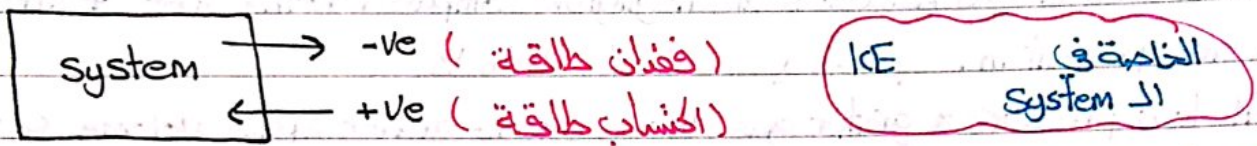 system
-ve ( فقدان طاقة )
+ve ( اكتساب طاقة )
KE الخاصة في
ال System